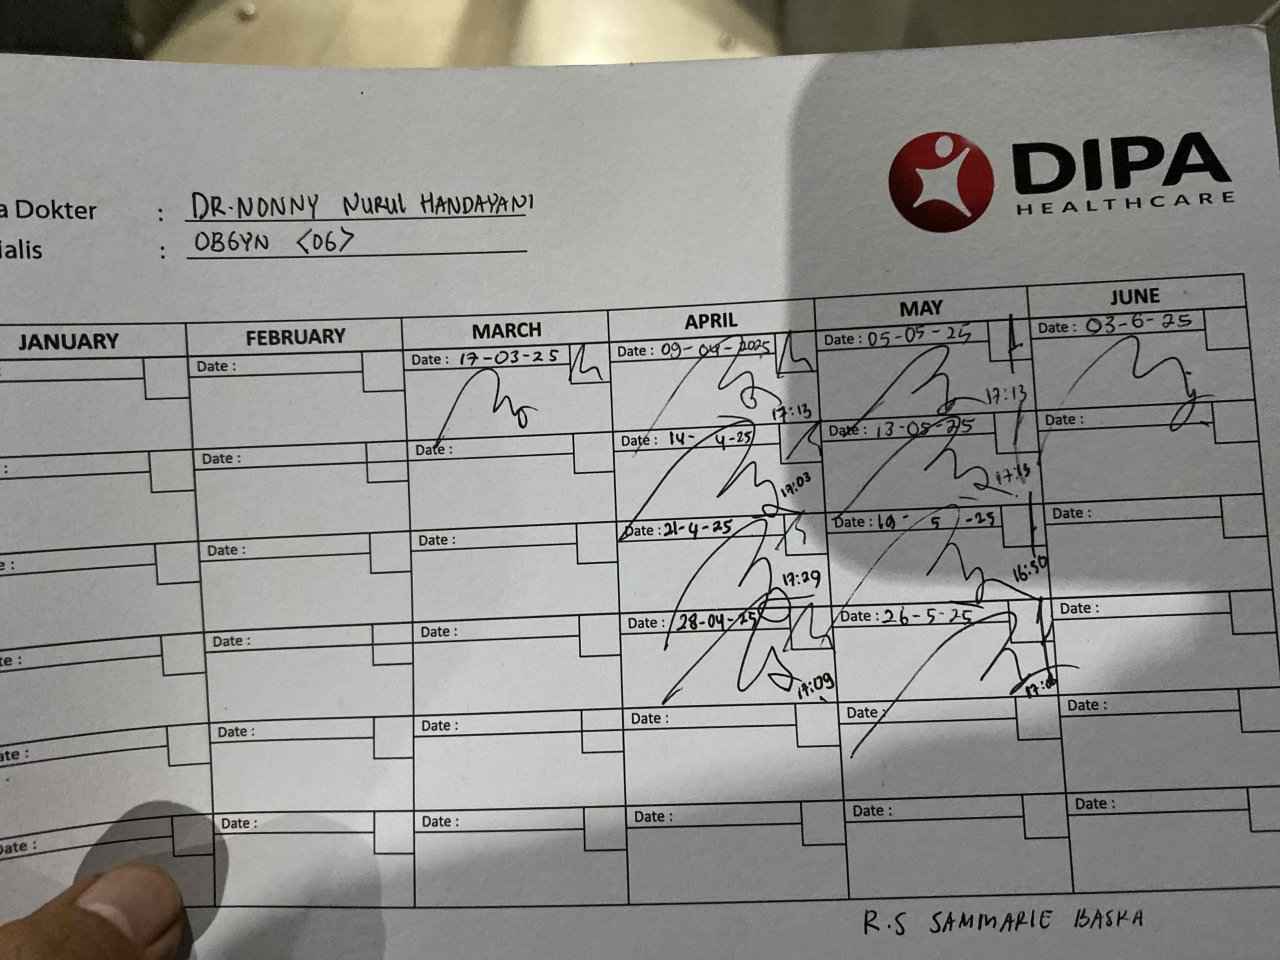 DIPA
HEALTHCARE
a Dokter : DR. NONNY NURUL HANDAYANI
ialis : OBGYN <OG>
JANUARY FEBRUARY MARCH APRIL MAY JUNE
: Date : Date : 17-03-25 Date : 09-04-2025 Date : 05-05-25 Date : 03-6-25
17:13 17:13
: Date : Date : Date : 14- 4-25 Date : 13-05-25 Date :
17:03 17:13
e : Date : Date : Date : 21-4-25 Date : 19- 5 -25 Date :
17:29 16:50
te : Date : Date : Date : 28-04-25 Date : 26-5-25 Date :
17:09
ate : Date : Date : Date : Date : Date :
Date : Date : Date : Date : Date : Date :
R.S SAMMARIE BASRA